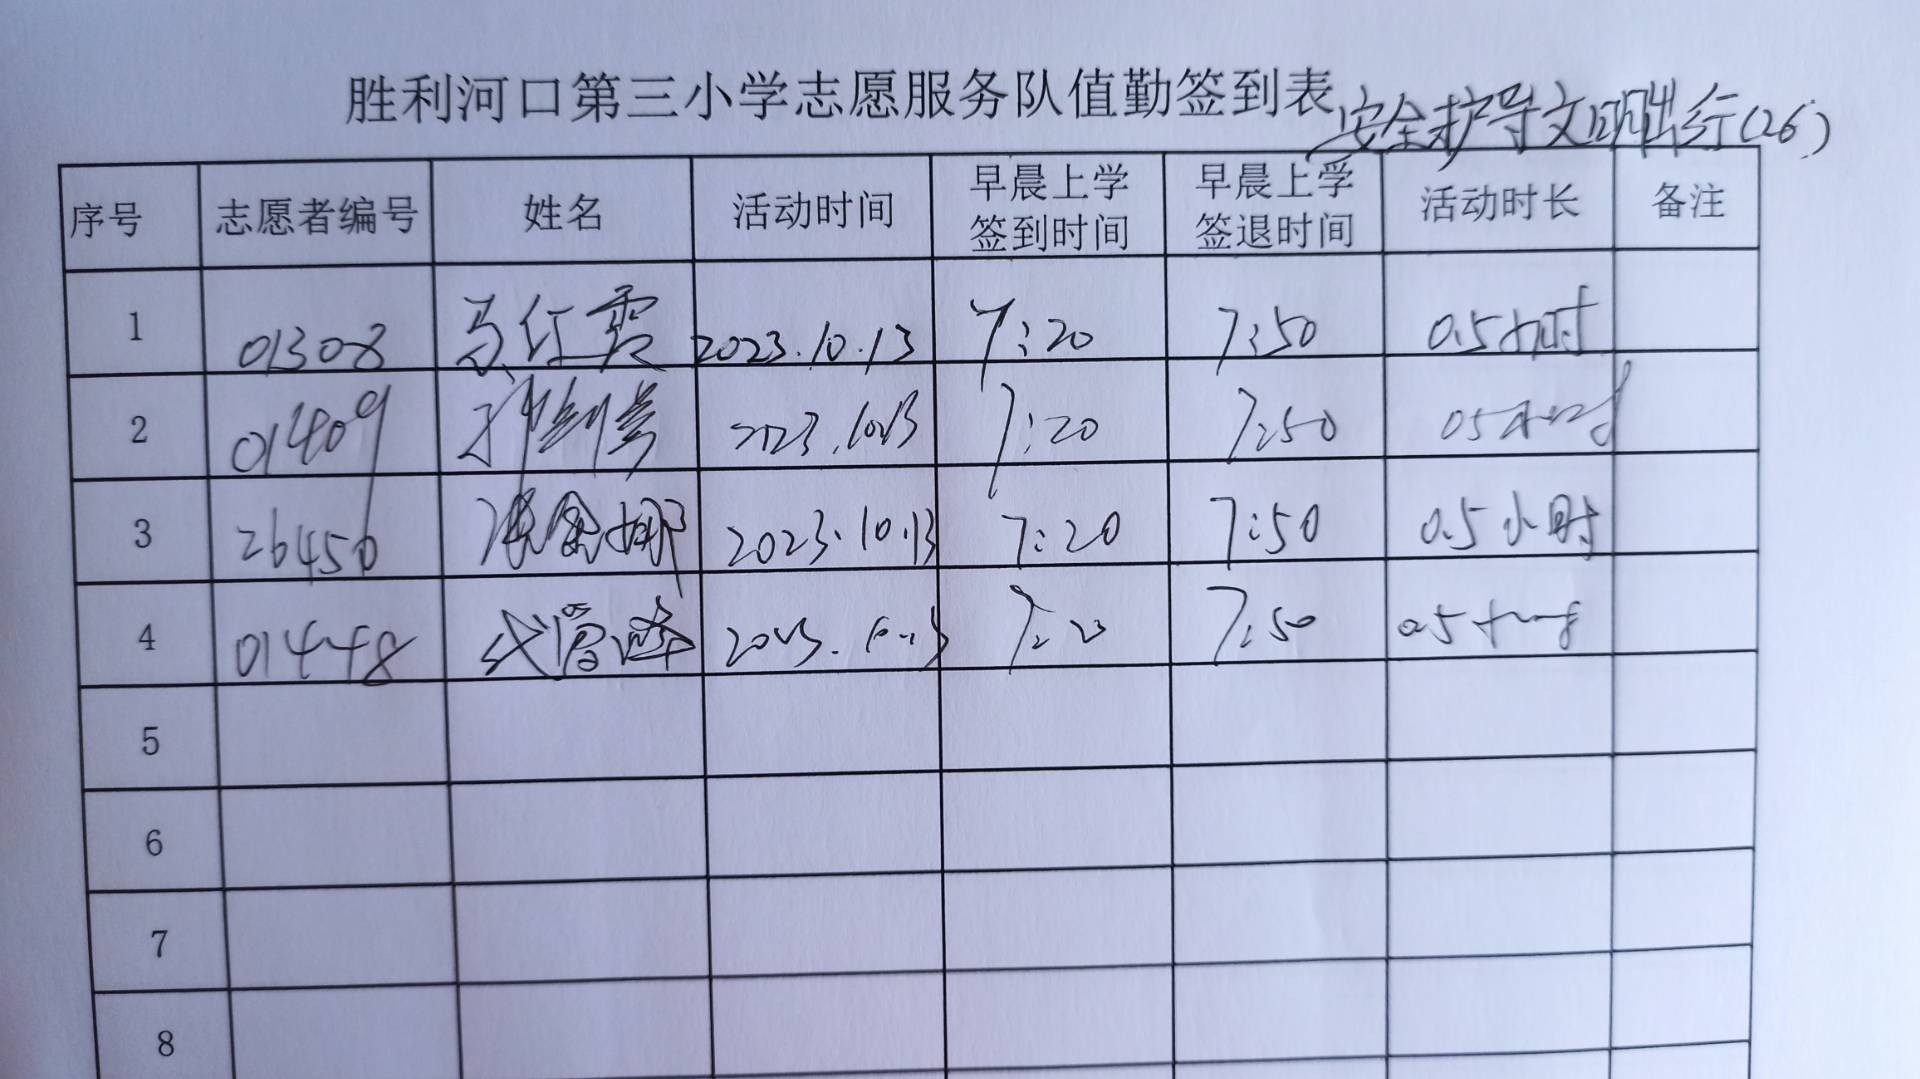 胜利河口第三小学志愿服务队值勤签到表 安全护导文明出行(26)
序号 志愿者编号 姓名 活动时间 早晨上学签到时间 早晨上学签退时间 活动时长 备注
1 01308 马红霞 2023.10.13 7:20 7:50 0.5小时
2 01409 2023.10.13 7:20 7:50 0.5小时
3 26456 娜 2023.10.13 7:20 7:50 0.5小时
4 01448 2023.10.13 7:20 7:50 0.5小时
5
6
7
8